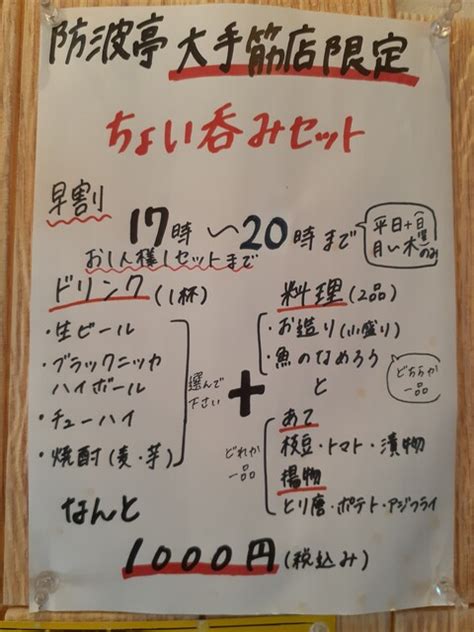 防波亭 大手筋店限定
ちょい呑みセット
早割
17時〜20時まで
平日+(日)
月〜木のみ
お1人様1セットまで
ドリンク(1杯)
・生ビール
・ブラックニッカ
ハイボール
・チューハイ
・焼酎(麦・芋)
選んで
下さい
+
料理(2品)
・お造り(小盛り)
・魚のなめろう
どちらか
一品
と
どれか
一品
あて
枝豆・トマト・漬物
揚物
とり唐・ポテト・アジフライ
なんと
1000円(税込み)